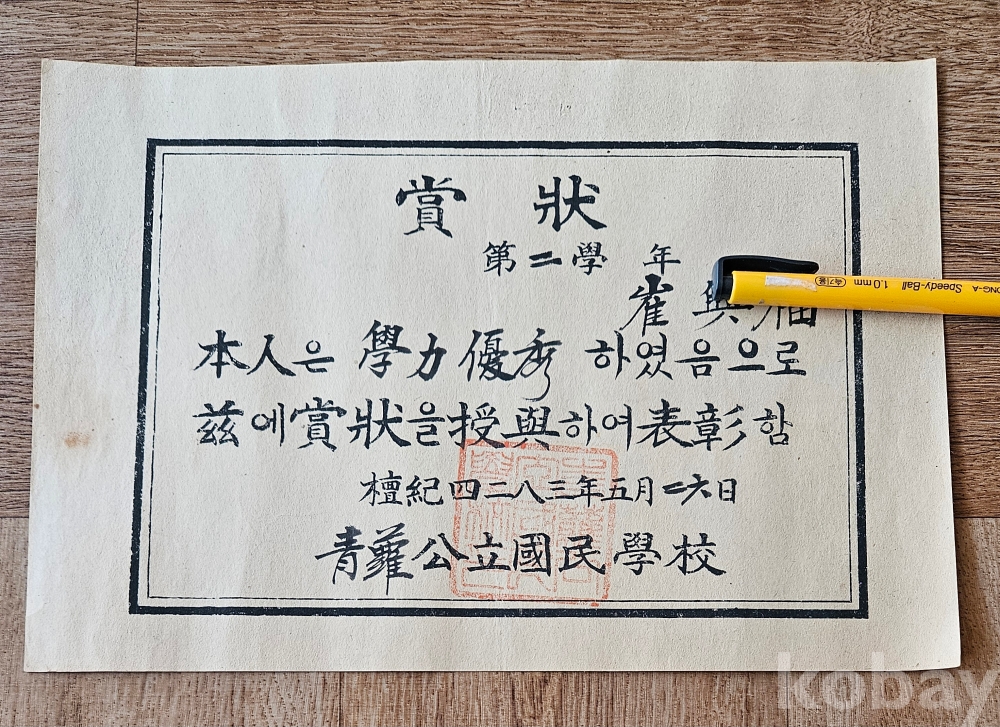 賞 狀
第二學 年
崔 興 福
本人은 學力優秀 하였음으로
玆에賞狀을授與하여表彰함
檀紀四二八三年五月二六日
靑蘿公立國民學校
ONG-A Speedy-Ball 1.0mm
kobay